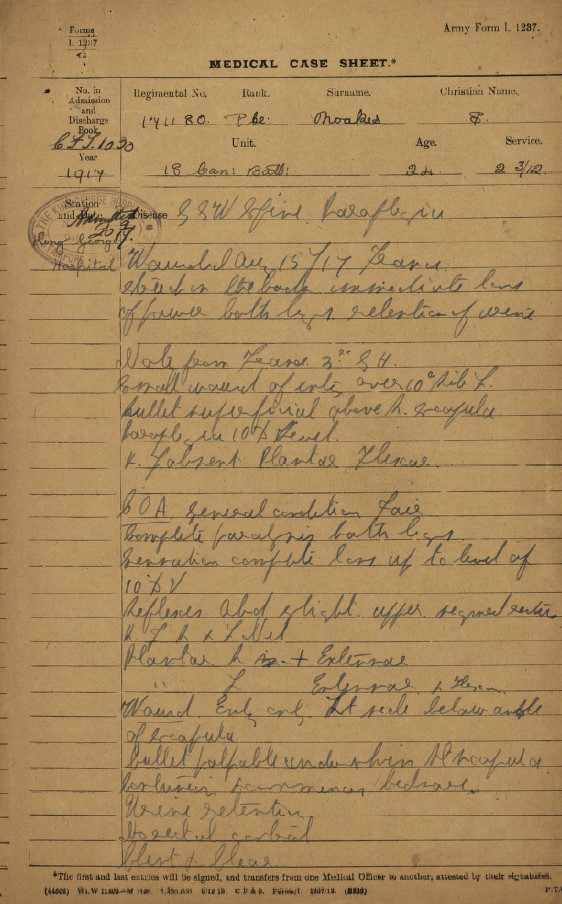 Forms
I. 1237
12
Army Form I. 1237.
MEDICAL CASE SHEET.*
No. in Admission and Discharge Book
Regimental No. Rank. Surname. Christian Name.
171180. Pte: Noakes
1030
Unit. Age. Service.
Year
1917
18 Can: Batt: 24 2 3/12
Station and Date
Disease G S W Spine Paraplegia
King George
Hospital
Wounded Aug 15/17 France
struck in the back immediate loss
of power both legs. retention of urine
Note from France 3rd G H.
Small wound of entry over 10th rib L.
bullet superficial above R. scapula
Paraplegia 10th D level.
K. J absent Plantar Flexor.
C O A General condition Fair
Complete paralysis both legs.
Sensation complete loss up to level of
10th D V
Reflexes Abd slight upper segment
K. J R & L Nil
Plantar R + Extensor
" L Extensor & Flexor
Wound Entry only. Lt side below angle
of scapula
bullet palpable under skin Rt scapula
commencing bedsore.
Urine retention
chest & clear
*The first and last entries will be signed, and transfers from one Medical Officer to another, attested by their signatures.